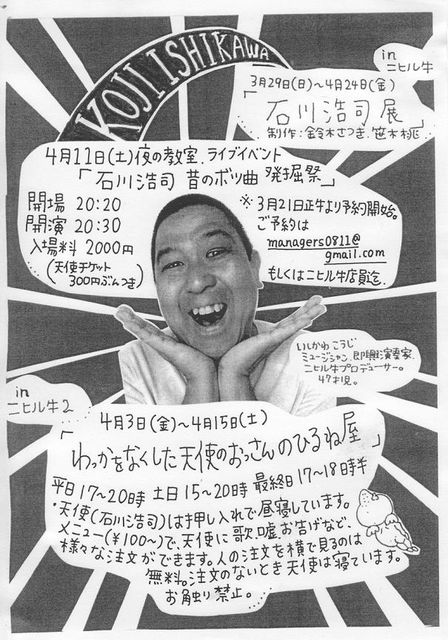 KOJI ISHIKAWA
in
ニヒル牛
3月29日(日)~4月24日(金)
「石川浩司 展」
制作:鈴木さつき.笹木桃
4月11日(土)夜の教室.ライブイベント
「石川浩司 昔のボツ曲 発掘祭」
開場 20:20
開演 20:30
入場料 2000円
(天使チケット
300円ぶんつき)
※3月21日正午より予約開始。
ご予約は
managers0811@
gmail.com
もしくはニヒル牛店員迄.
いしかわ こうじ
ミュージシャン.即興演奏家.
ニヒル牛プロデューサー。
47才児。
in
ニヒル牛2
4月3日(金)~4月15日(土)
「わっかをなくした天使のおっさんのひるね屋」
平日17~20時 土日15~20時 最終日17~18時半
・天使(石川浩司)は押し入れで昼寝しています。
メニュー(¥100~)で、天使に歌、嘘、お告げなど、
様々な注文ができます。人の注文を横で見るのは
無料。注文のないとき天使は寝ています。
お触り禁止。